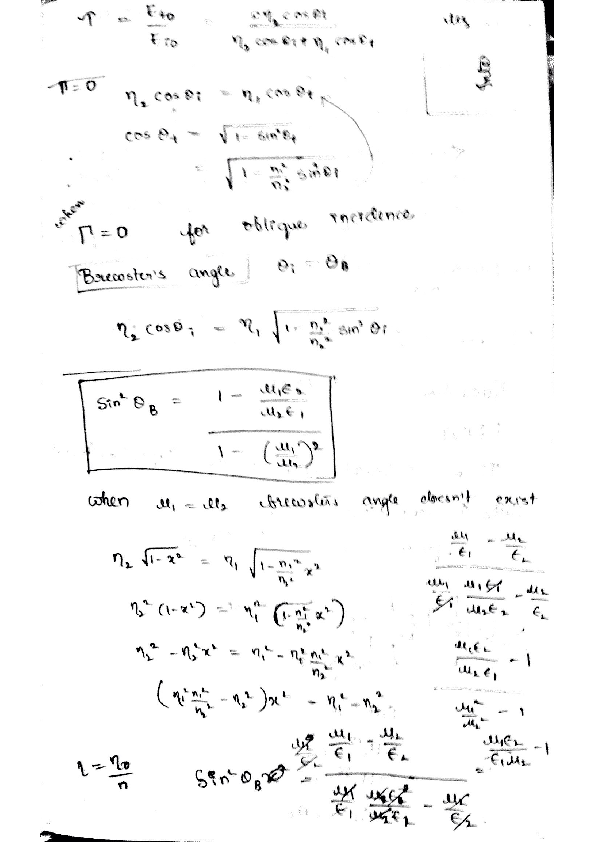 τ = Et0 / Ei0 = 2η₂ cos θi / (η₂ cos θi + η₁ cos θt)
Into
Γ = 0 η₂ cos θi = η₁ cos θt
cos θt = √(1 - sin²θt)
= √(1 - n₁²/n₂² sin²θi)
when
Γ = 0 for oblique incidence
Brewster's angle θi = θB
η₂ cos θi = η₁ √(1 - n₁²/n₂² sin² θi)
Sin² θB = (1 - μ₁ε₂/μ₂ε₁) / (1 - (μ₁/μ₂)²)
when μ₁ = μ₂ brewster's angle doesn't exist
η₂ √(1-x²) = η₁ √(1 - n₁²/n₂² x²)
η₂² (1-x²) = η₁² (1 - n₁²/n₂² x²)
η₂² - η₂² x² = η₁² - η₁² n₁²/n₂² x²
(η₁² n₁²/n₂² - η₂²) x² = η₁² - η₂²
η = η₀/n
Sin² θB = (μ₁/ε₁ - μ₂/ε₂) / (μ₁/ε₁ μ₁ε₁/μ₂ε₂ - μ₂/ε₂)
μ₁/ε₁ - μ₂/ε₂
μ₁/ε₁ μ₁ε₁/μ₂ε₂ - μ₂/ε₂
μ₁ε₂/μ₂ε₁ - 1
μ₁²/μ₂² - 1
= μ₁ε₂/ε₁μ₂ - 1